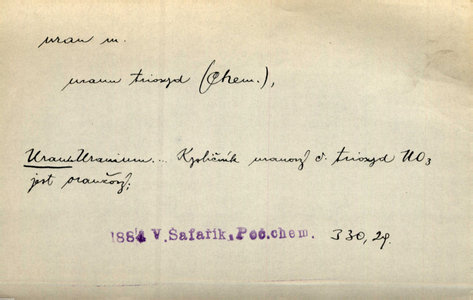 uran m.
uranu trioxyd (Chem.),
Uran Uranium... Kysličník uranový č. trioxyd UO3
jest oranžový;
1884 V. Šafařík, Poč. chem. 330, 24.